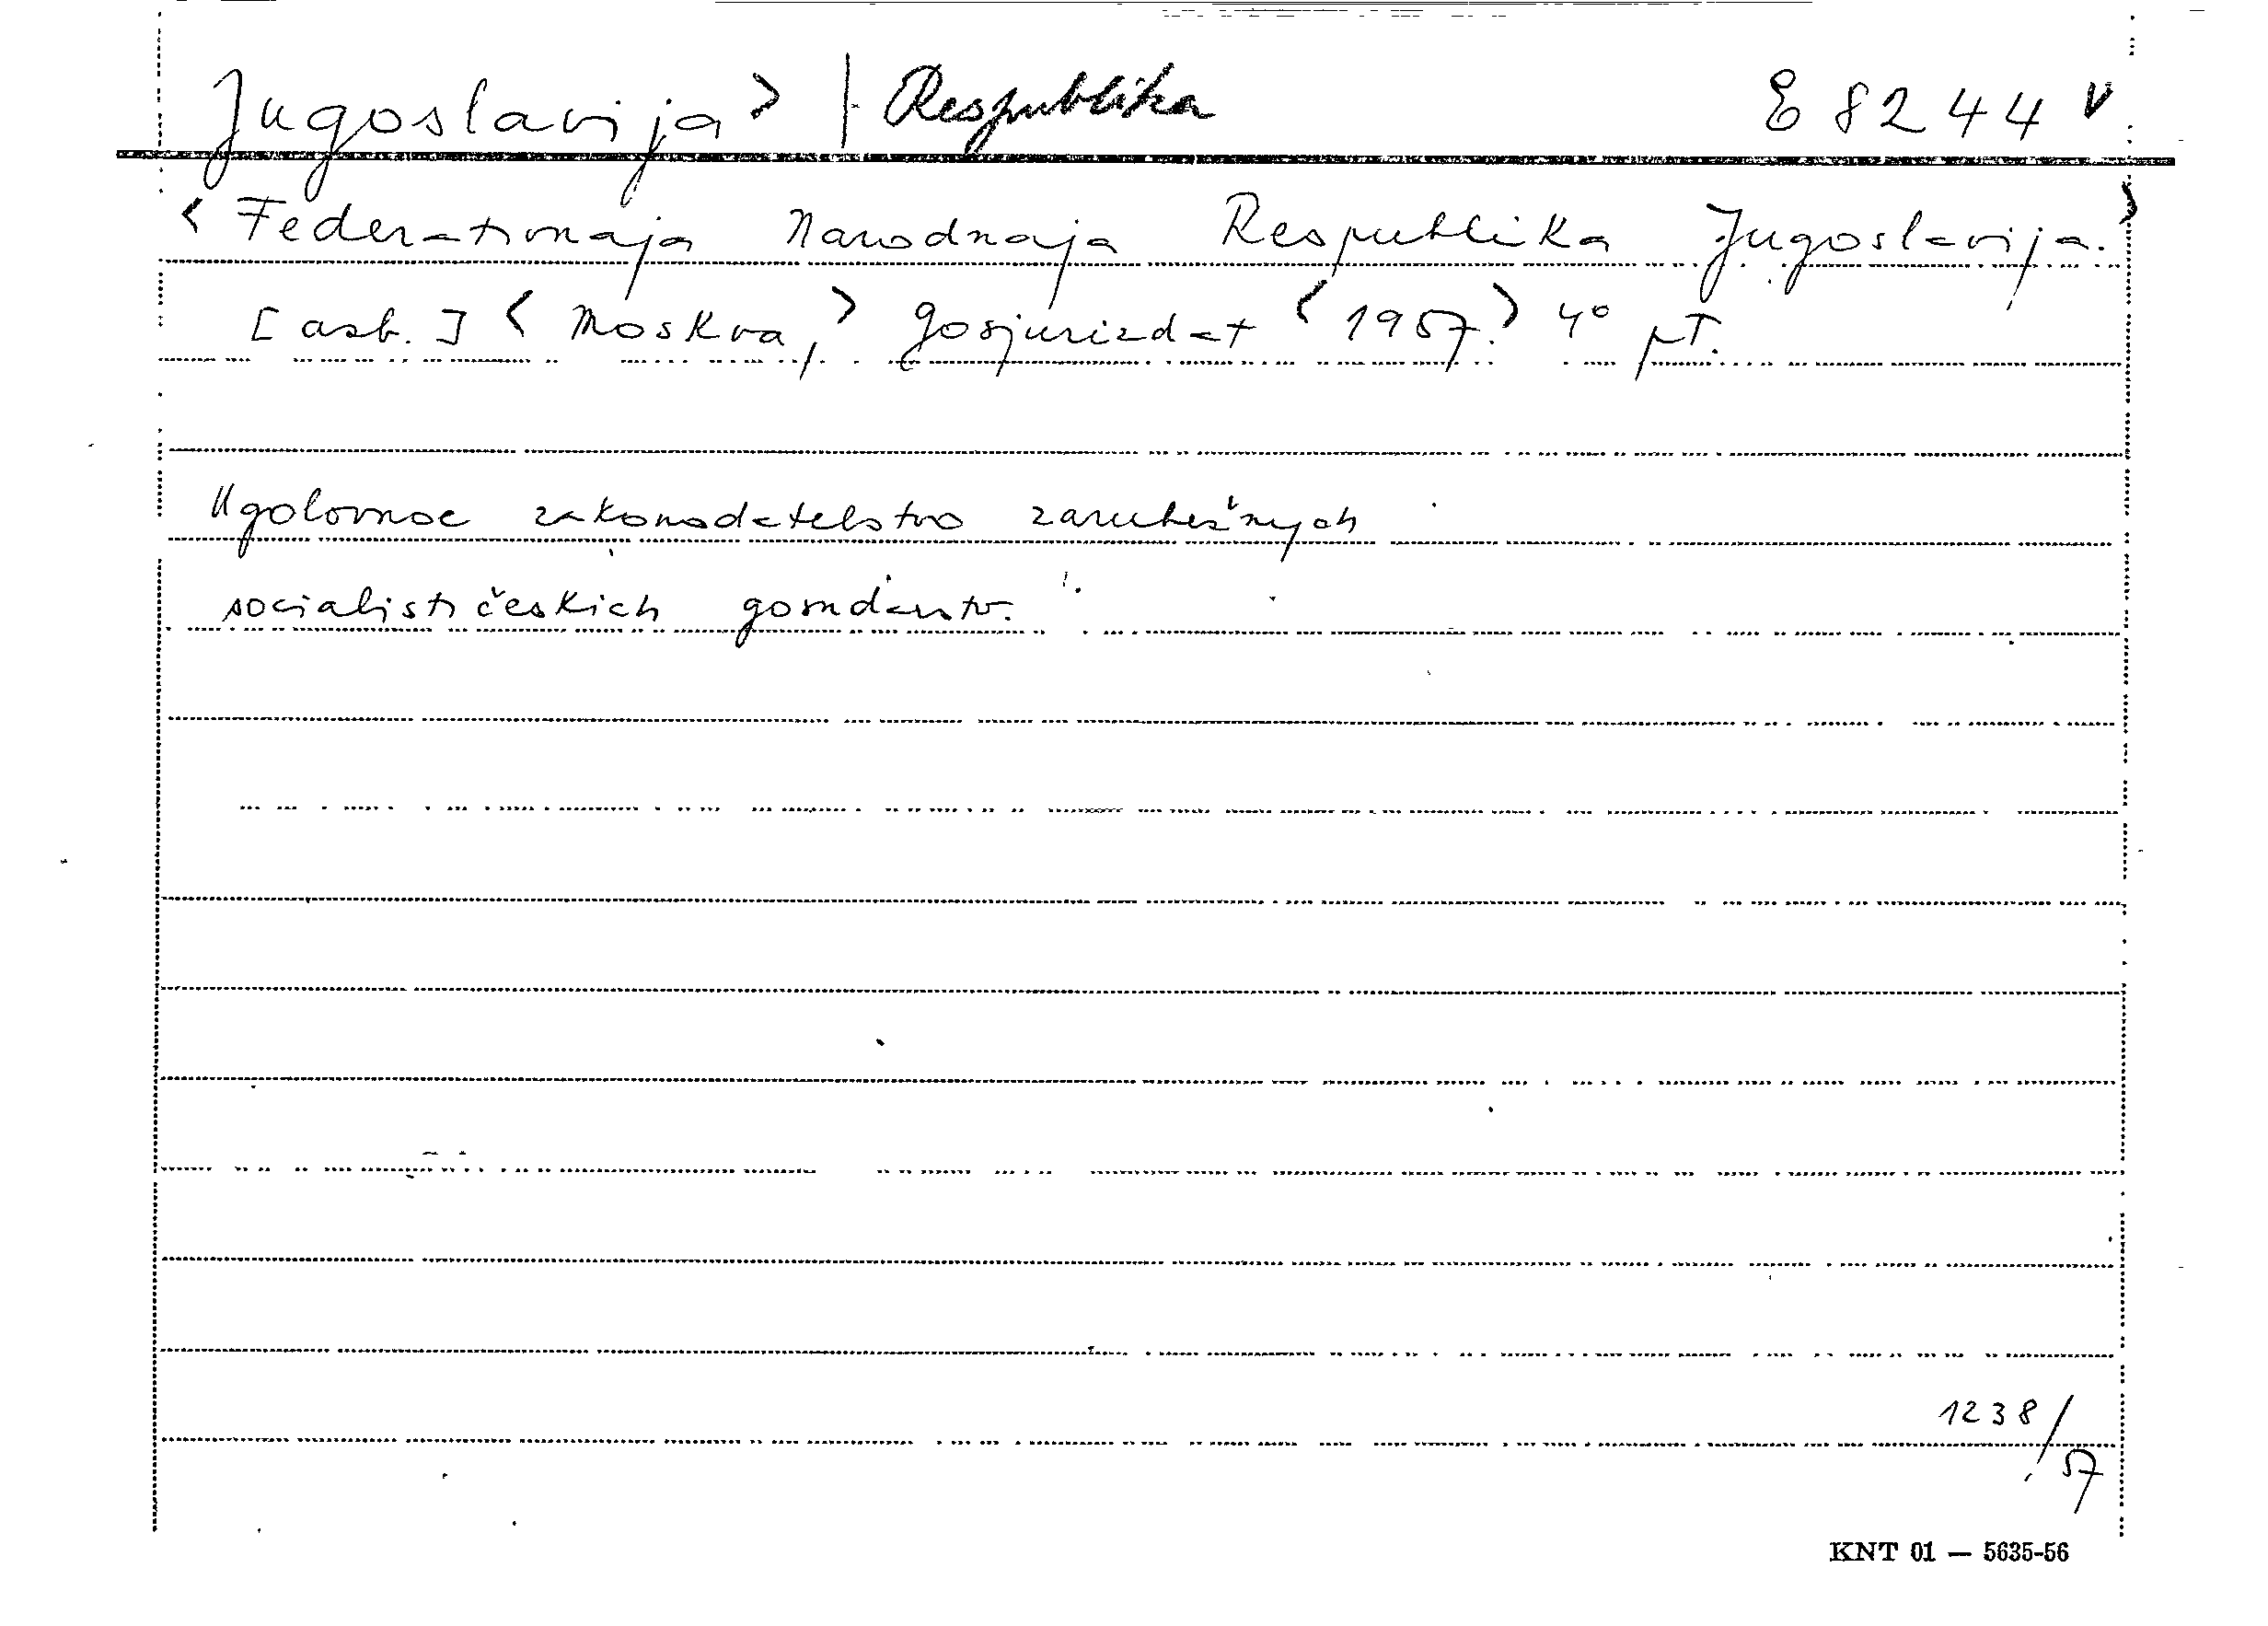 Jugoslavija > | - Respublika E 8244 v
< Federativnaja Narodnaja Respublika Jugoslavija. >
[asb.] < Moskva, > Gosjurizdat < 1957. > 4° pT.
Ugolovnoe zakonodatelstvo zarubežnych
socialističeskich gosudarstv.
1238/
57
KNT 01 — 5635-56